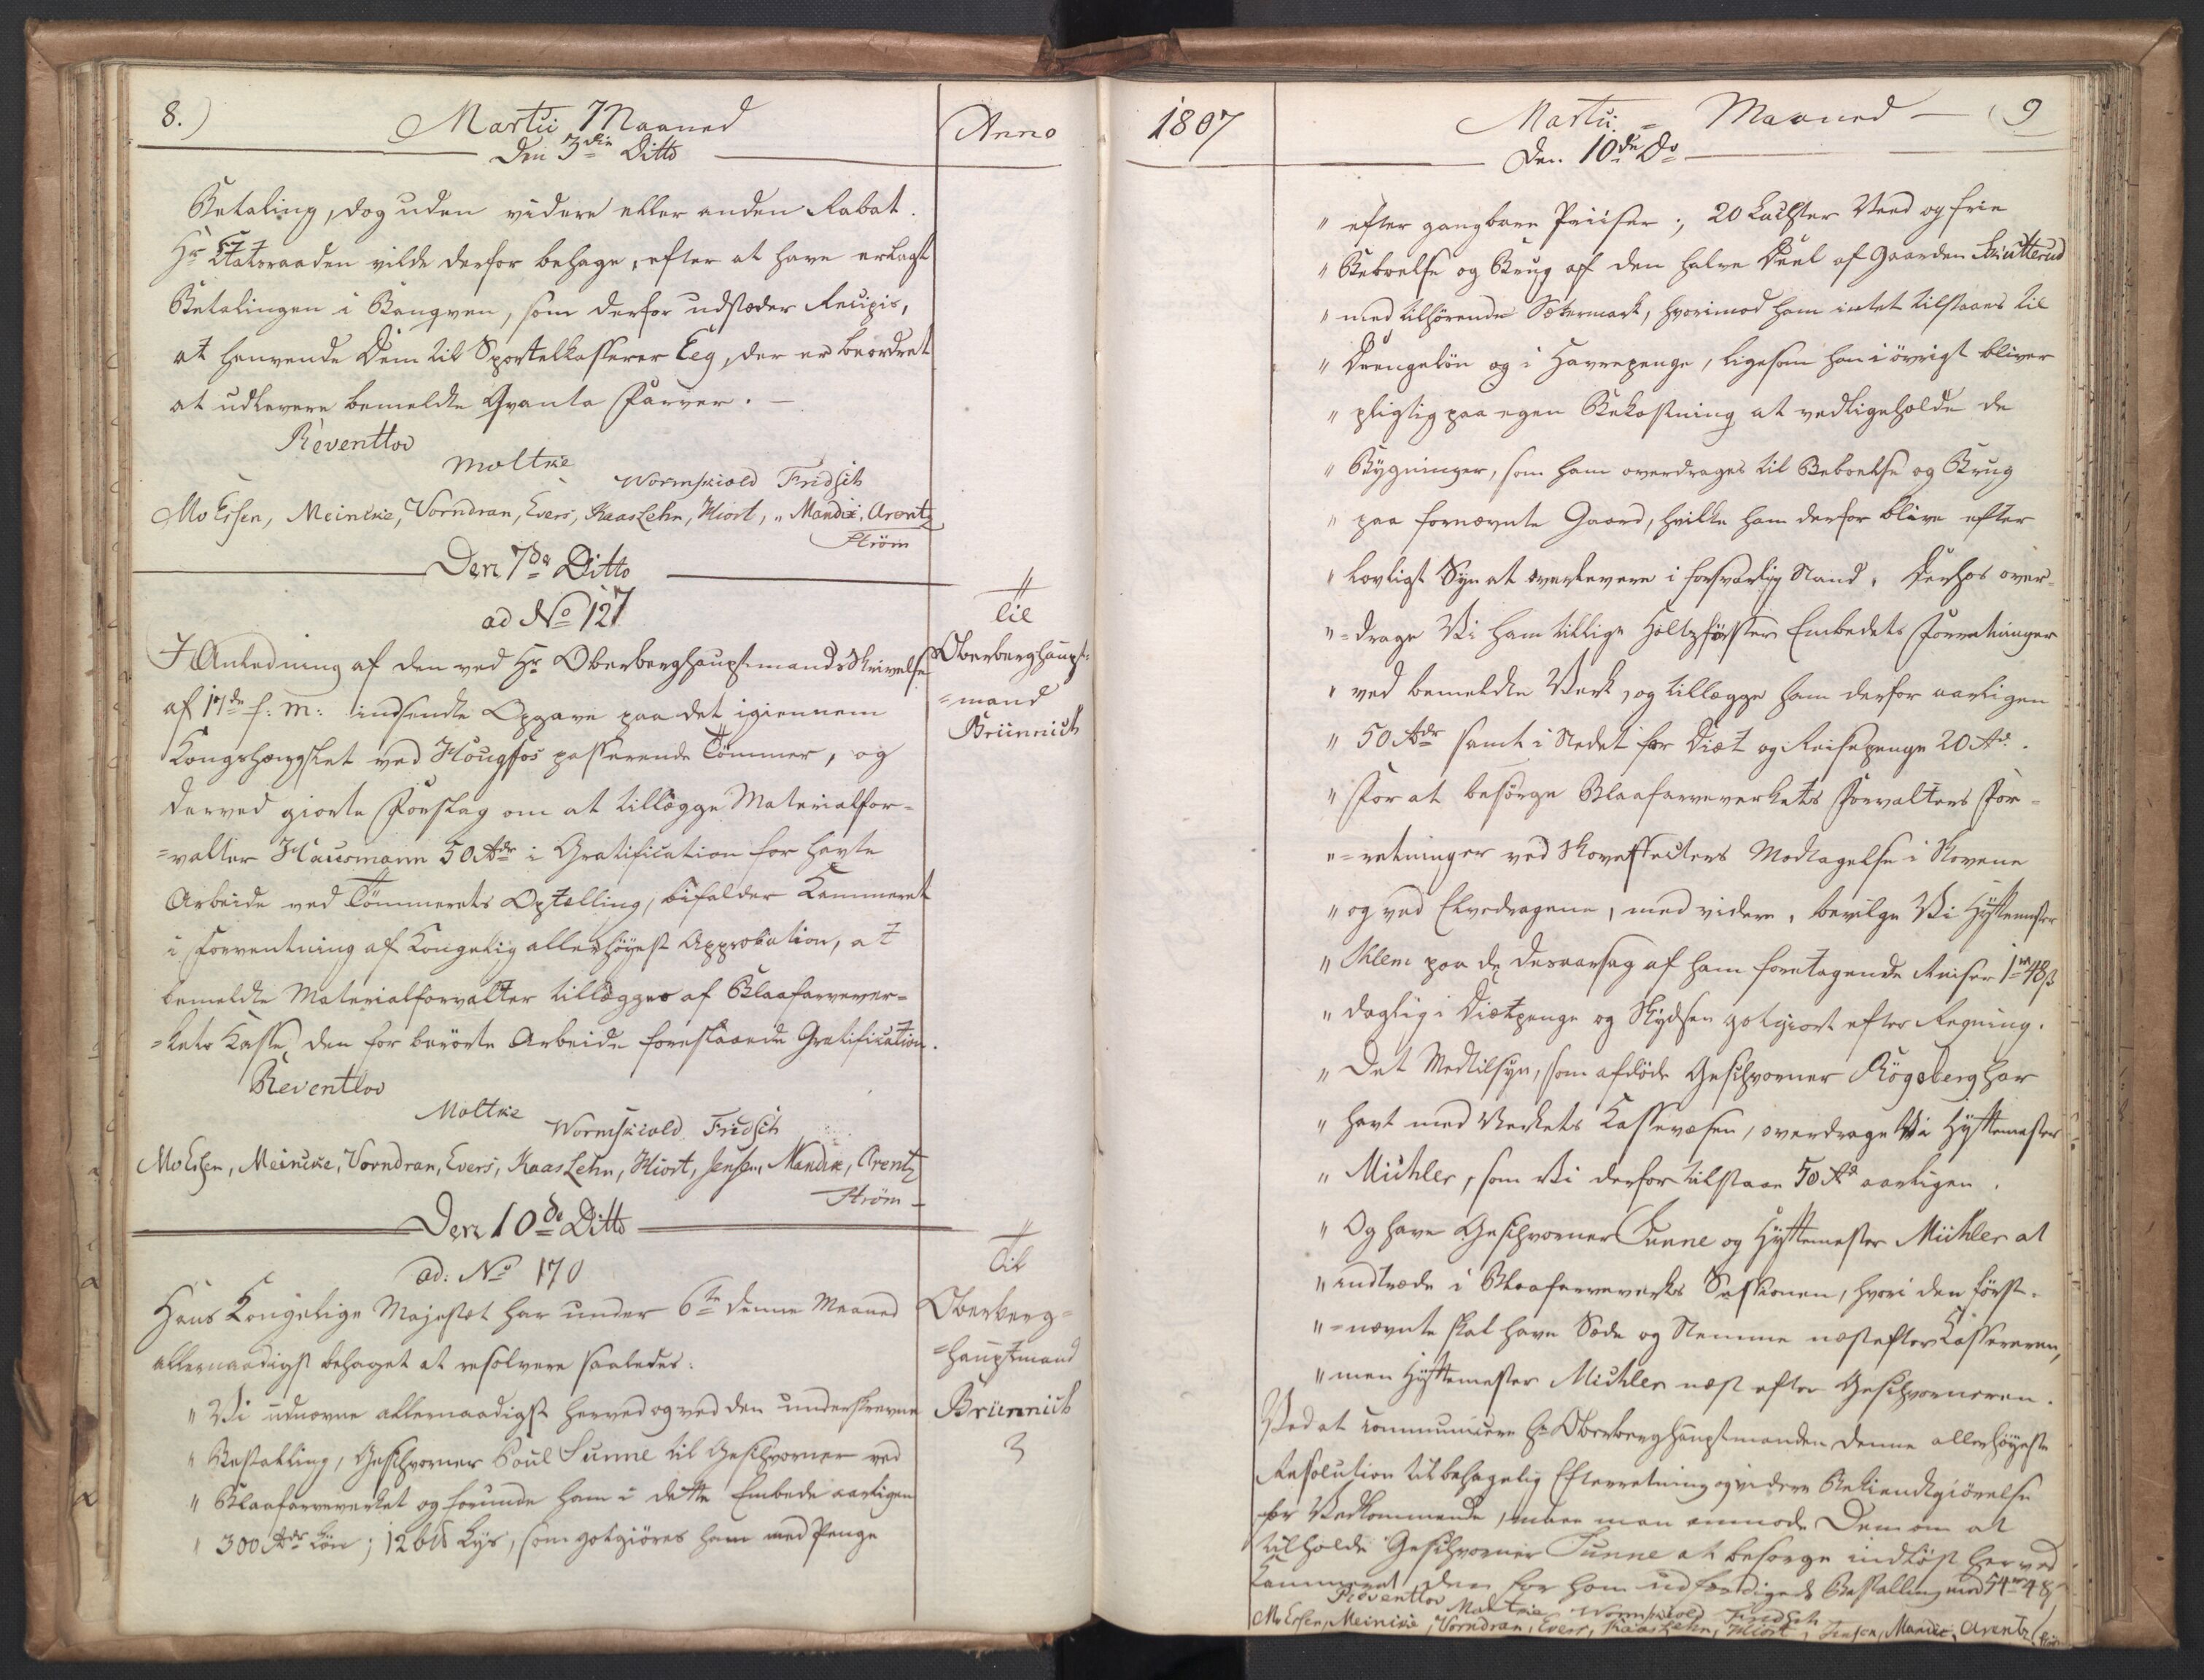 8.)
Martii Maaned
Anno
Den 3die Ditto
Betaling, dog uden videre eller anden Rabat.
Hr Etatsraaden vilde derfor behage, efter at have erlagt
Betalingen i Banqven, som derfor udstæder Recipis,
at henvende Dem til Sportelkasserer Eeg, der er beordret
at udlevere bemeldte Qvanta Farver. —
Reventlov
Moltke
Wormskiold Fridsch
Mv Essen, Meincke, Vorndran, Evers, Kaas Lehn, Hiort, „ Mandix, Arentz
Strøm
Den 7de Ditto
ad No 127
Til
Oberberghaupt=
=mand
Brünnich
I Anledning af den ved Hr Oberberghauptmands Skrivelse
af 17de f: M: indsendte Opgave paa det igiennem
Kongshængslet ved Hougfos passerende Tømmer, og
derved giorte Forslag om at tillægge Materialfor=
=valter Hausmann 50 Rdr i Gratification for havte
Arbeide ved Tømmerets Optælling, bifalder Kammeret
i Forventning af Kongelig allerhøyest Approbation, at
bemeldte Materialforvalter tillægges af Blaafarvever=
=kets Kasse den for berørte Arbeide foreslaaede Gratification.
Reventlov
Moltke
Wormskiold Fridsch
Mv Essen, Meincke, Vorndran, Evers, Kaas Lehn, Hiort, Jensen, Mandix, Arentz
Strøm
Den 10de Ditto
ad: No 170
Til
Oberberg=
=hauptmand
Brünnich
3
Hans Kongelige Majestæt har under 6te denne Maaned
allernaadigst behaget at resolvere saaledes:
„ Vi udnævne allernaadigst herved og ved den underskrevne
„ Bestalling, Geschworner Poul Sunne til Geschworner ved
„ Blaafarveverket og forunde ham i dette Embede aarligen
„ 300 Rdr Løn; 126 lb Lys, som godtgiøres ham med Penge
1807
Martii = Maaned —
(9
Den 10de Do
„ efter gangbare Priiser; 20 Lachter Veed og frie
„ Beboelse og Brug af den halve Deel af Gaarden Skutterud
„ med tilhørende Sætermark, hvorimod ham intet tilstaaes til
„ Drengeløn og i Havrepenge, ligesom han i øvrigt bliver
„ pligtig paa egen Bekostning at vedligeholde de
„ Bygninger, som ham overdrages til Beboelse og Brug
„ paa fornævnte Gaard, hvilke ham derfor blive efter
„ lovligt Syn at overlevere i forsvarlig Stand. Derhos over=
„ =drage Vi ham tillige Holtzførster Embedets Forretninger
„ ved bemeldte Verk, og tillægge ham derfor aarligen
„ 50 Rdr samt i Stedet for Diæt og Reisepenge 20 Rd.
„ For at besørge Blaafarveverkets Forvalters For=
„ =retninger ved Skoveffecters Modtagelse i Skovene
„ og ved Elvedragene, med videre, bevilge Vi Hyttemester
„ Klem paa de desaarsag af ham foretagende Reiser 1 rd 48 ß
„ daglig i Diætpenge og Skydsen godtgiort efter Regning.
„ Det Medtilsyn, som afdøde Geschworner Rögeberg har
„ havt med Verkets Kassevæsen, overdrage Vi Hyttemester
„ Michler, som Vi derfor tilstaae 50 Rd aarligen.
„ Og have Geschworner Sunne og Hyttemester Michler at
„ indtræde i Blaafarveverkets Sessionen, hvori den først=
„ =nævnte skal have Sæde og Stemme næst efter Kassereren,
„ men Hyttemester Michler næst efter Geschworneren.
Ved at communicere Hr Oberberghauptmanden denne allerhøyeste
Resolution til behagelig Efterretning og videre Bekiendtgiørelse
for Vedkommende, maae man anmode Dem om at
tilholde Geschworner Sunne at besørge indløst her ved
Kammeret den for ham udfærdigede Bestalling med 54 rd 48 ß
Reventlov Moltke Wormskiold Fridsch
Mv Essen, Meincke, Vorndran, Evers, Kaas Lehn, Hiort, Jensen, Mandix, Arentz